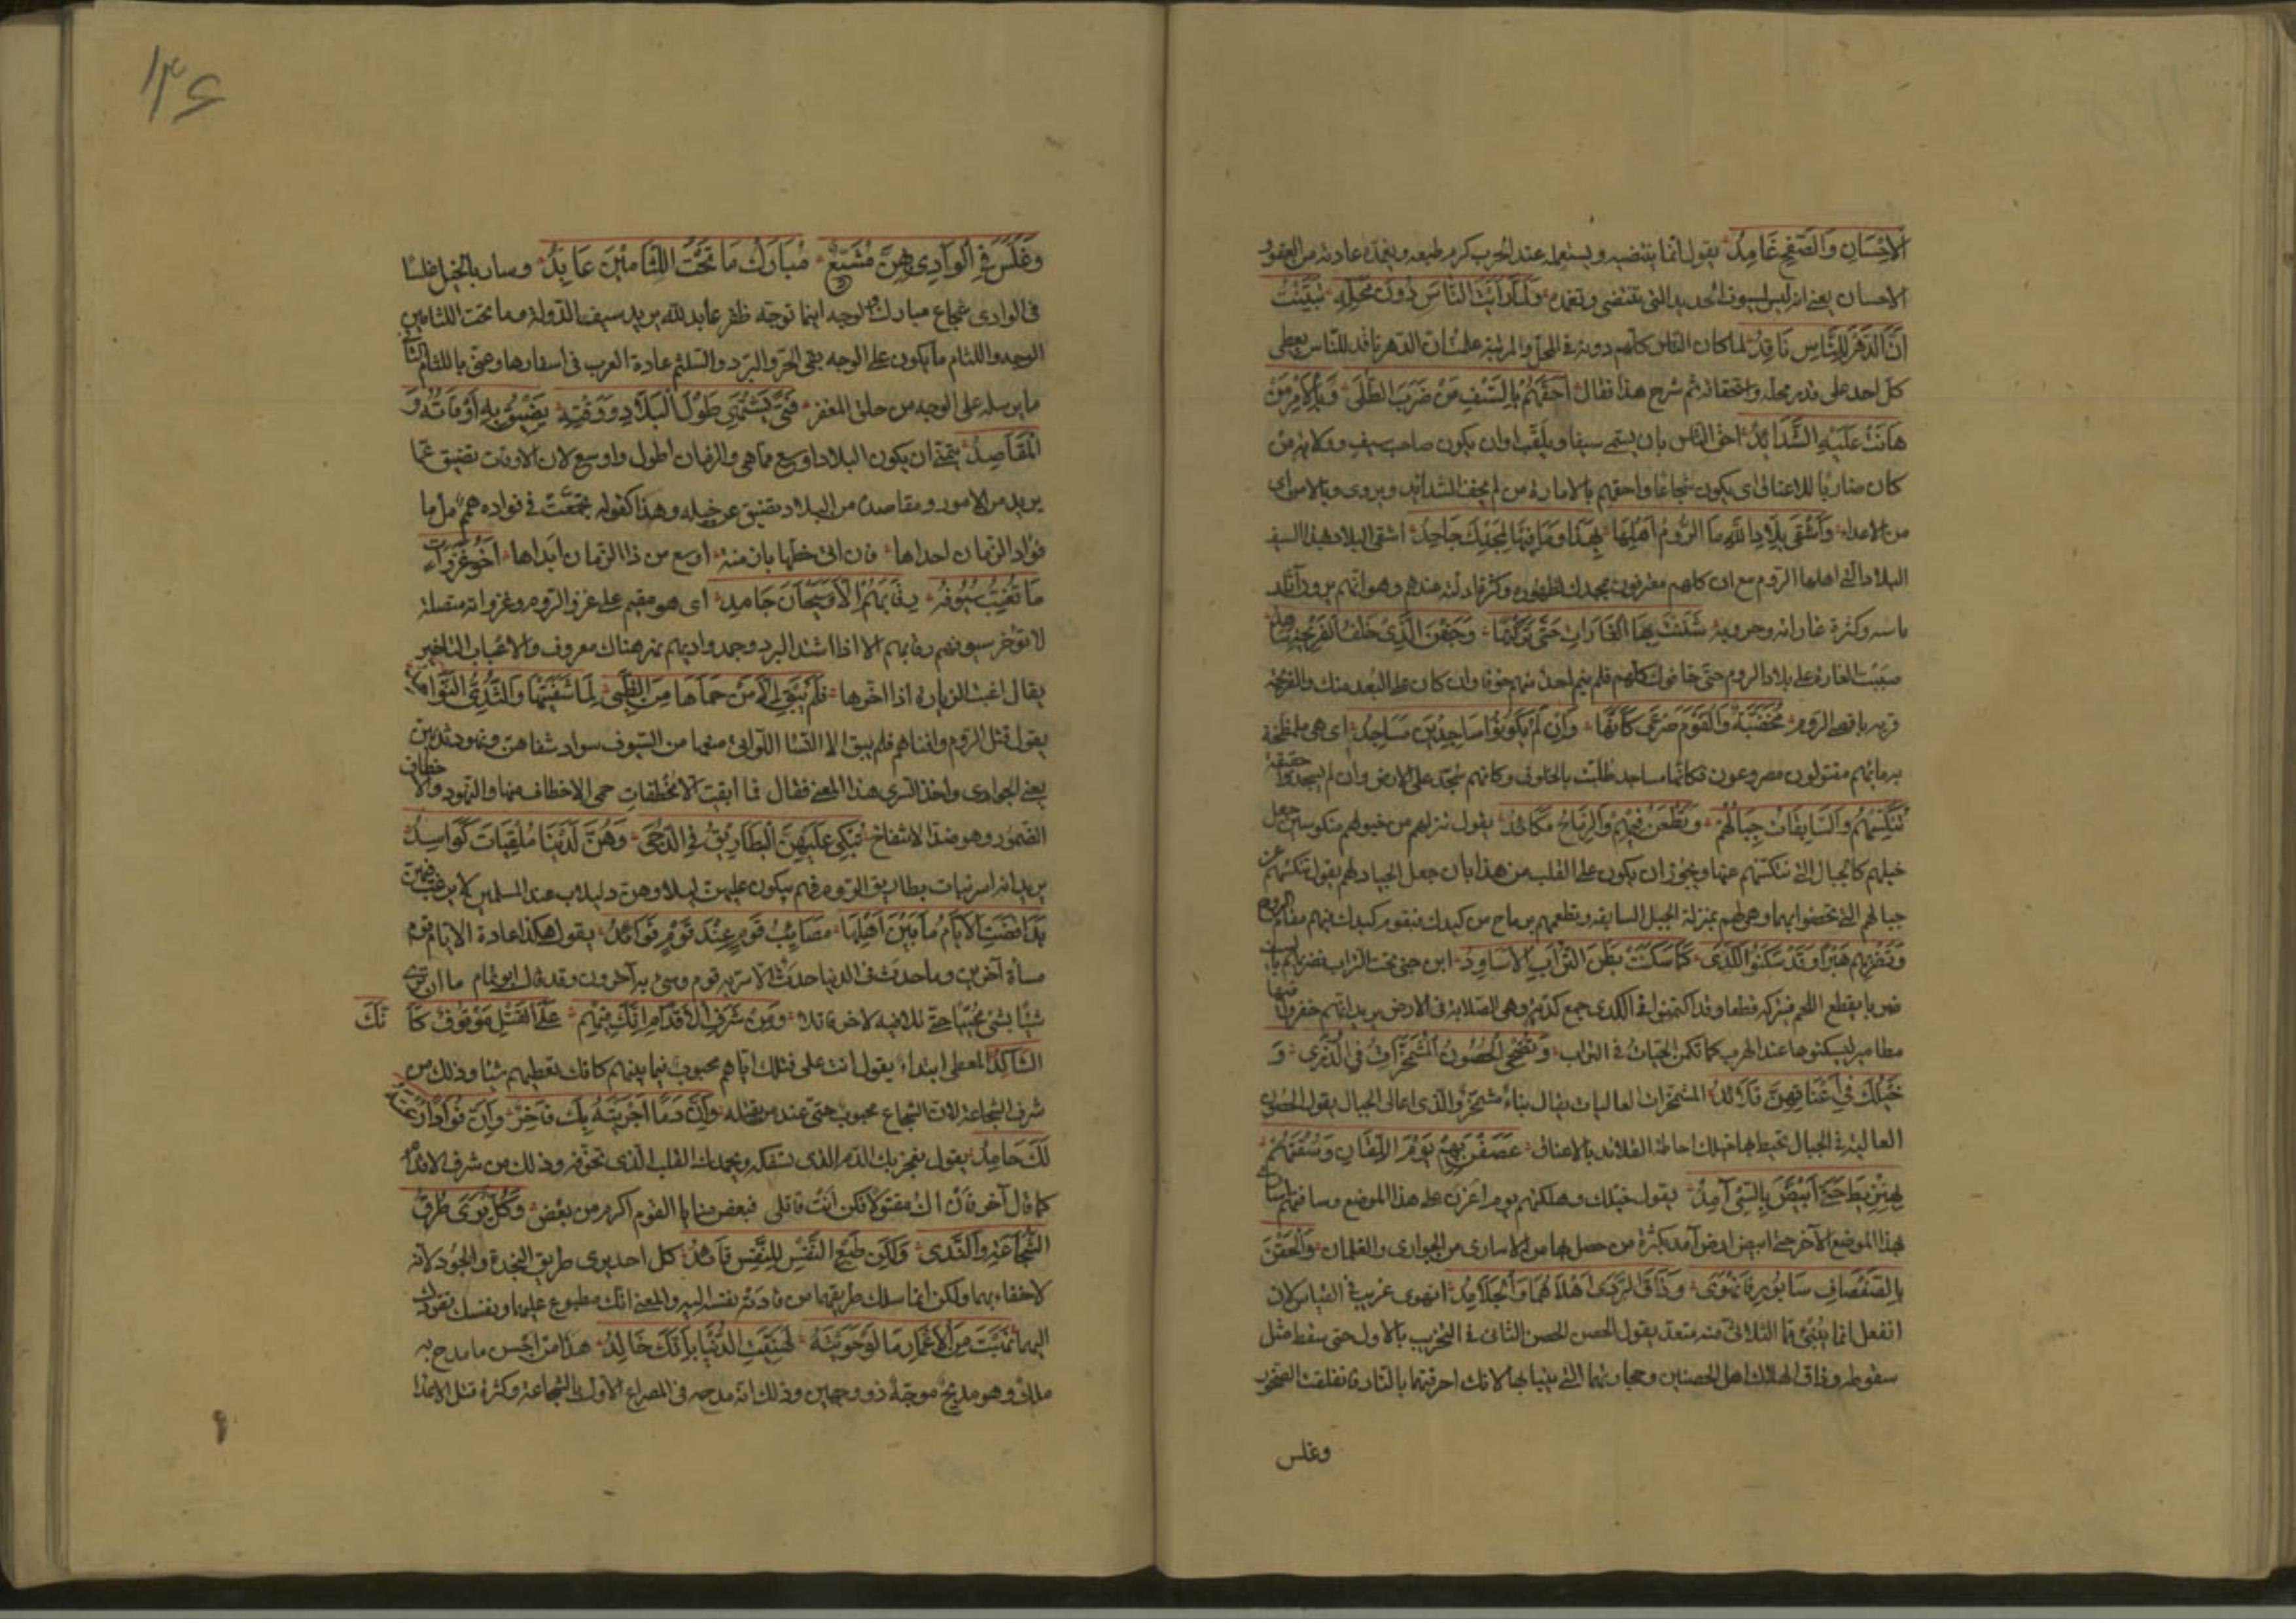 الاِحْسَانِ وَالصَّفْحِ غَامِدُ يقول انما ينتضيه ويستعمله عند الحرب كرم طبعه ويغمده عادته من العفو و
الاحسان يعني انه ليس كسيوف الحديد التي تنتضى وتغمد وَلَمَّا رَأَيْتُ النَّاسَ دُونَ مَحَلِّهِ تَيَقَّنْتُ
اَنَّ الدَّهْرَ لِلنَّاسِ نَاقِدُ لما كان الناس كلهم دونه في المحل والمرتبة علمت ان الدهر ناقد للناس يعطى
كل احد على قدر محله واستحقاقه ثم شرح هذا فقال اَحَقُّهُمْ بِالسَّيْفِ مَنْ ضَرَبَ الطُّلَى وَبِالْاَمْرِ مَنْ
هَانَتْ عَلَيْهِ الشَّدَائِدُ احق الناس بان يسمى سيفا ويلقب او ان يكون صاحب سيف وولاية من
كان ضاربا للاعناق اى يكون شجاعا واحقهم بالامارة من لم يخف الشدائد ويروى وبالامن اى
من الاعداء وَاَشْقَى بِلَادِ اللهِ مَا الرُّومُ اَهْلُهَا بِهَذَا وَمَا فِيهَا لِمَجْدِكَ جَاحِدُ اشقى البلاد بهذا السيف
البلاد التي اهلها الروم مع ان كلهم معترفون بمجدك لظهوره وكثرة ادلته عندهم وهو انهم يرون آثار
باسه وكثرة غاراته وحروبه شَنَنْتَ بِهَا الْغَارَاتِ حَتَّى تَرَكْتَهَا وَجَفْنُ الَّذِي خَلْفَ الْفَرَنْجَةِ سَاهِدُ
صببت الغارة على بلاد الروم حتى خافوك كلهم فلم ينم احد منهم خوفا وان كان على البعد منك والفرنجة
قرية باقصى الروم مُخَضَّبَةٌ وَالْقَوْمُ صَرْعَى كَأَنَّهَا وَاِنْ لَمْ يَكُونُوا سَاجِدِينَ مَسَاجِدُ اى هي ملطخة
بدمائهم مقتولون مصروعون فكانها مساجد طليت بالخلوق وكانهم سجد على الارض وان لم يسجدوا حقيقة
تُنَكِّسُهُمْ وَالسَّابِقَاتُ جِبَالُهُمْ وَتَطْعَنُ فِيهِمْ وَالرِّمَاحُ مَكَائِدُ يقول تنزلهم من خيولهم منكوسين جعل
خيلهم كالجبال التي تنكسهم عنها ويجوز ان يكون على القلب من هذا بان جعل الجياد لهم يقول تنكسهم عن
جبالهم التي تحصنوا بها وهي لهم بمنزلة الخيل السابقة وتطعنهم برماح من كيدك فيقوم كيدك فيهم مقام الرماح
وَتَضْرِبُهُمْ هَبْرًا وَقَدْ سَكَنُوا الْكُدَى كَمَا سَكَنَتْ بَطْنَ التُّرَابِ الْاَسَاوِدُ ابن جني تحت التراب تضربهم
ضربا يقطع اللحم فيتركه قطعا وقد اكتمنوا في الكدى جمع كدية وهي الصلابة في الارض يريد انهم حفروا فيها
مطامير ليسكنوها عند الهرب كما تكمن الحيات في التراب وَتُضْحِي الْحُصُونُ الْمُشْمَخِرَّاتُ فِي الذُّرَى وَ
خَيْلُكَ فِي اَعْنَاقِهِنَّ قَلَائِدُ المشمخرات العاليات يقال بناء مشمخر والذرى اعالى الجبال يقول الحصون
العالية في الجبال تحيط بها خيلك احاطة القلائد بالاعناق عَصَفْنَ بِهِمْ يَوْمَ اللُّقَانِ وَسُقْنَهُمْ
بِهِنْزِيطَ حَتَّى ابْيَضَّ بِالسَّبْيِ آمِدُ يقول خيلك اهلكتهم يوم اغرن على هذا الموضع وساقتهم اسارى
بهذا الموضع الآخر حتى ابيض ارض آمد بكثرة من حصل بها من الاسارى من الجواري والغلمان وَاَلْحَقْنَ
بِالصَّفْصَافِ سَابُورَ فَانْهَوَى وَذَاقَ الرَّدَى اَهْلَاهُمَا وَالْجَلَامِدُ انهوى غريب في القياس لان
انفعل انما يبنى مما الثلاثى منه متعد يقول الحصن الحصن الثانى في التخريب بالاول حتى سقط مثل
سقوطه وذاق الهلاك اهل الحصنين وحجارتهما التي بنيا بها لانك احرقتها بالنار فانفلقت الصخور
وغلس
۱۳۶
وَغَلَّسَ فِي الْوَادِي بِهِنَّ مُشَيَّعٌ مُبَارَكُ مَا تَحْتَ اللِّثَامَيْنِ عَابِدُ وسار بالخيل غلسا
في الوادى شجاع مبارك الوجه اينما توجه ظفر عابد لله يريد سيف الدولة وما تحت اللثامين
الوجه واللثام ما يكون على الوجه يقي الحر والبرد والتلثم عادة العرب في اسفارها وعنى باللثام الثاني
ما يرسله على الوجه من حلق المغفر فَتًى يَشْتَهِي طُولَ الْبِلَادِ وَوَقْتِهِ يَضِيقُ بِهِ اَوْقَاتُهُ وَ
الْمَقَاصِدُ يتمنى ان يكون البلاد اوسع مما هي والزمان اطول واوسع لان الاوقات تضيق عما
يريد من الامور ومقاصده من البلاد تضيق عن خيله وهذا كقوله تجمعت في فواده همم مل ما
فواد الزمان احداها فان اتى حظها بازمنة اوسع من ذا الزمان ابداها اَخُو غَزَوَاتٍ
مَا تُغِبُّ سُيُوفُهُ رِقَابَهُمْ اِلَّا وَسَيْحَانُ جَامِدُ اى هو مقيم على غزو الروم وغزواته متصلة
لا تؤخر سيوفهم رقابهم الا اذا اشتد البرد وجمد واديهم نهر هناك معروف والاغباب التاخير
يقال اغب الزيارة اذا اخرها فَلَمْ يَبْقَ اِلَّا مَنْ حَمَاهَا مِنَ الظُّبَى لِمَا شَفَتَيْهَا وَالثُّدِيُّ النَّوَاهِدُ
يقول قتل الروم وافناهم فلم يبق الا النساء اللواتى منعها من السيوف سواد شفاههن ونهود ثديهن
يعني الجوارى واخذ السرى هذا المعنى فقال فما ابقيت الا مخطفات حمى الاخطاف منها والنهود والاخطاف
الضمور وهو ضد الانتفاخ تُبَكِّي عَلَيْهِنَّ الْبَطَارِيقُ فِي الدُّجَى وَهُنَّ لَدَيْنَا مُلْقَيَاتٌ كَوَاسِدُ
يريد انه اسر بنات بطاريق الروم فهم يبكون عليهن ليلا وهن ذليلات عند المسلمين لا يرغب فيهن
بِذَا قَضَتِ الْاَيَّامُ مَا بَيْنَ اَهْلِهَا مَصَائِبُ قَوْمٍ عِنْدَ قَوْمٍ فَوَائِدُ يقول هكذا عادة الايام
مسأة آخرين وما حدث في الدنيا حدث الا سر به قوم وسيء به آخرون وقد قال ابو تمام ما ان ترى
شيئا بشئ محييا حتى تلاقيه لاخر قاتلا وَمِنْ شَرَفِ الْاِقْدَامِ اَنَّكَ فِيهِمْ عَلَى الْقَتْلِ مَوْمُوقٌ كَأَنَّكَ
الشَّاكِدُ المعطى ابتداء يقول انت على قتلك اياهم محبوب فيما بينهم كانك تعطيهم شيئا وذلك من
شرف الشجاعة لان الشجاع محبوب حتى عند من يقتله وَاَنَّ دَمًا اَجْرَيْتَهُ بِكَ فَاخِرٌ وَاَنَّ فُوَادًا رُعْتَهُ
لَكَ حَامِدُ يقول يفخر بك الدم الذى تسفكه ويحمدك القلب الذى تخوفه وذلك من شرف الاقدام
كما قال آخر فان اك مقتولا فكن انت قاتلى فبعض منايا القوم اكرم من بعض وَكُلٌّ يَرَى طُرُقَ
الشَّجَاعَةِ وَالنَّدَى وَلَكِنَّ طَبْعَ النَّفْسِ لِلنَّفْسِ قَائِدُ كل احد يرى طريق النجدة والجود لانه
لا خفاء بهما ولكن انما سلك طريقهما من قادته نفسه اليه والمعنى انك مطبوع عليهما ونفسك تقودك
اليهما نَهَبْتَ مِنَ الْاَعْمَارِ مَا لَوْ حَوَيْتَهُ لَهُنِّئَتِ الدُّنْيَا بِاَنَّكَ خَالِدُ هذا من احسن ما مدح به
ملك وهو مديح موجه ذو وجهين وذلك انه مدحه في المصراع الاول بالشجاعة وكثرة قتل الاعدا